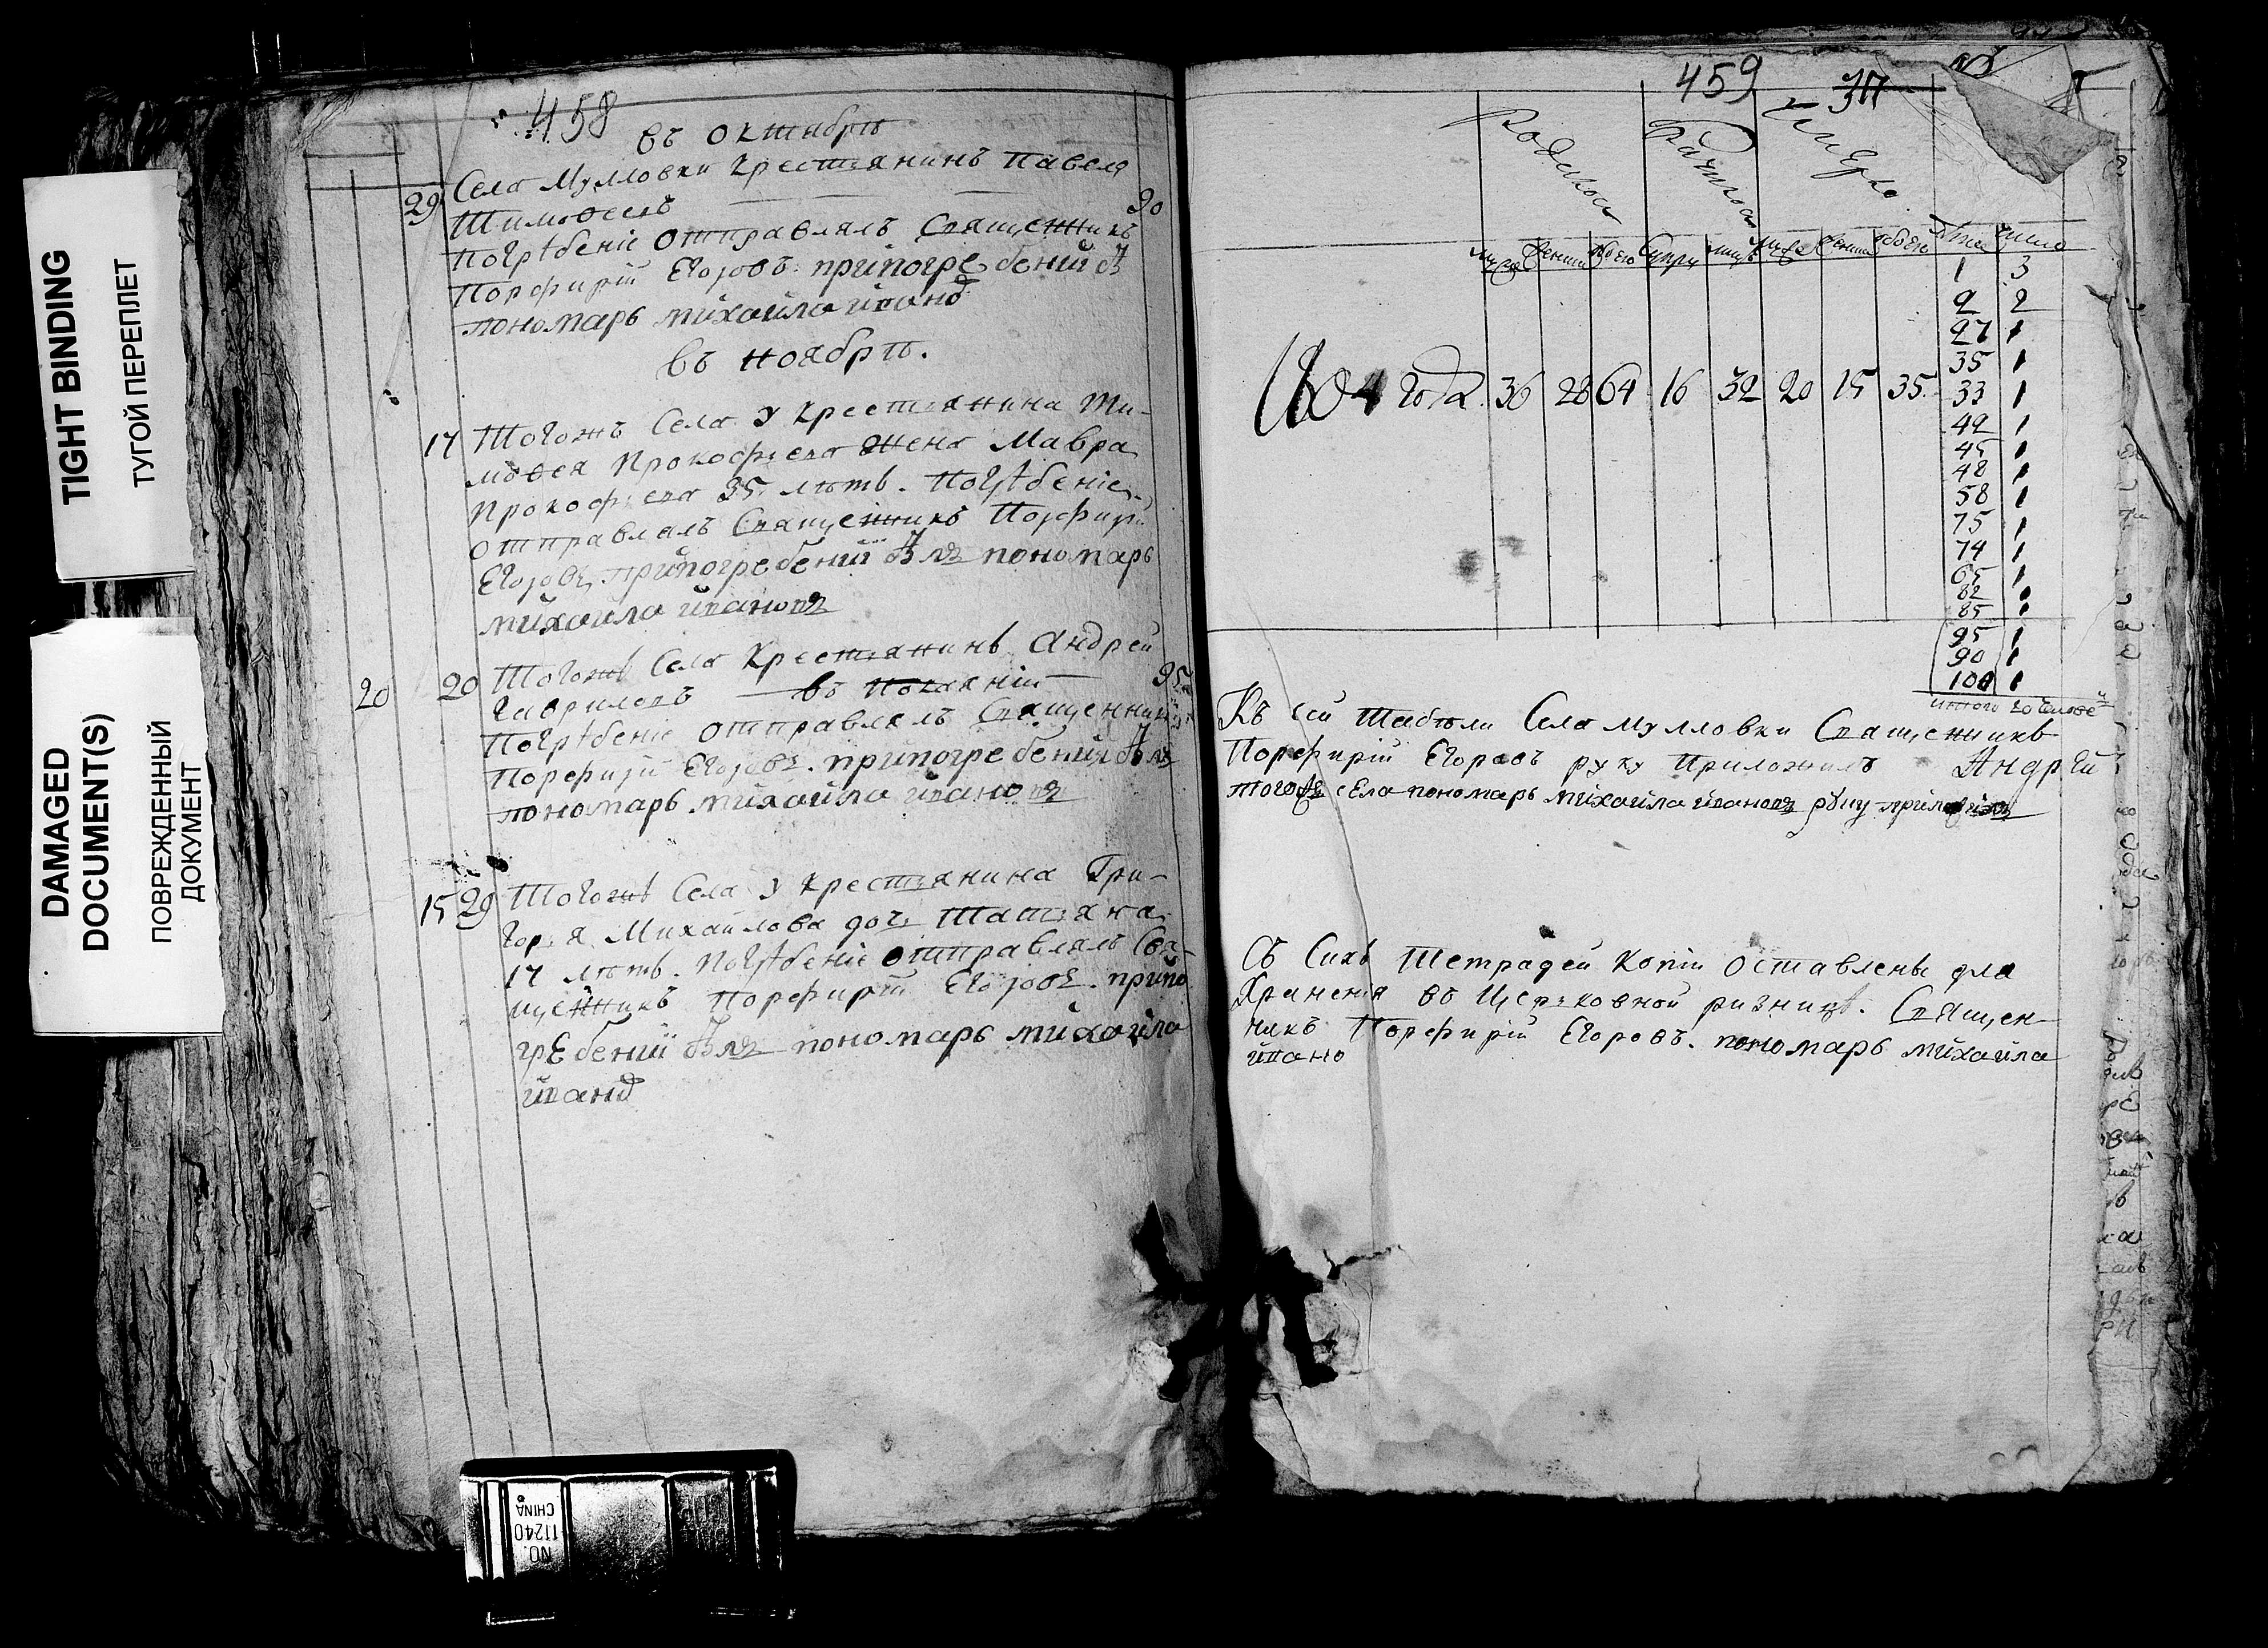 TIGHT BINDING
ТУГОЙ ПЕРЕПЛЕТ
DAMAGED
DOCUMENT(S)
ПОВРЕЖДЕННЫЙ
ДОКУМЕНТ
458
въ октябрѣ
29 Села Мулловки крестьянинъ Павелъ
Тимофеевъ 90
Погрѣбеніе отправлялъ Священникъ
Порфирій Егоровъ. припогребеніи
пономарь михайла ивано
въ ноябрѣ.
17 Тогожъ Села у крестьянина Ти-
мофея Прокофьева жена Мавра
Прокофьева 35 лѣтъ. Погрѣбеніе
отправлялъ Священникъ Порфирій
Егоровъ, припогребеніи былъ пономарь
михайла ивановъ
20 20 Тогожъ Села крестьянинъ Андрей
Гавриловъ 95
Погрѣбеніе отправлялъ Священникъ
Порфирій Егоровъ. припогребеніи былъ
пономарь михайла ивановъ
15 29 Тогожъ Села у крестьянина Гри-
горья Михайлова дочь Татьяна
17 лѣтъ. Погрѣбеніе отправлялъ Свя-
щенникъ Порфирій Егоровъ. припо
гребеніи былъ пономарь михайла
ивано
459
1804 года 36 28 64 16 32 20 15 35
лѣта число
1 3
2 2
27 1
35 1
33 1
42 1
45 1
48 1
58 1
75 1
74 1
65 1
82
85
95 1
90 1
100 1
итого 20
Къ сей Табѣли Села Мулловки Священникъ
Порфирій Егоровъ руку приложилъ Андрей
тогожъ села пономарь михайла ивановъ руку приложилъ
Съ Сихъ Тетрадей копіи оставлены для
Храненія въ Церьковной ризницѣ. Священ-
никъ Порфирій Егоровъ. пономарь михайла
ивано
NO.
11240
CHINA